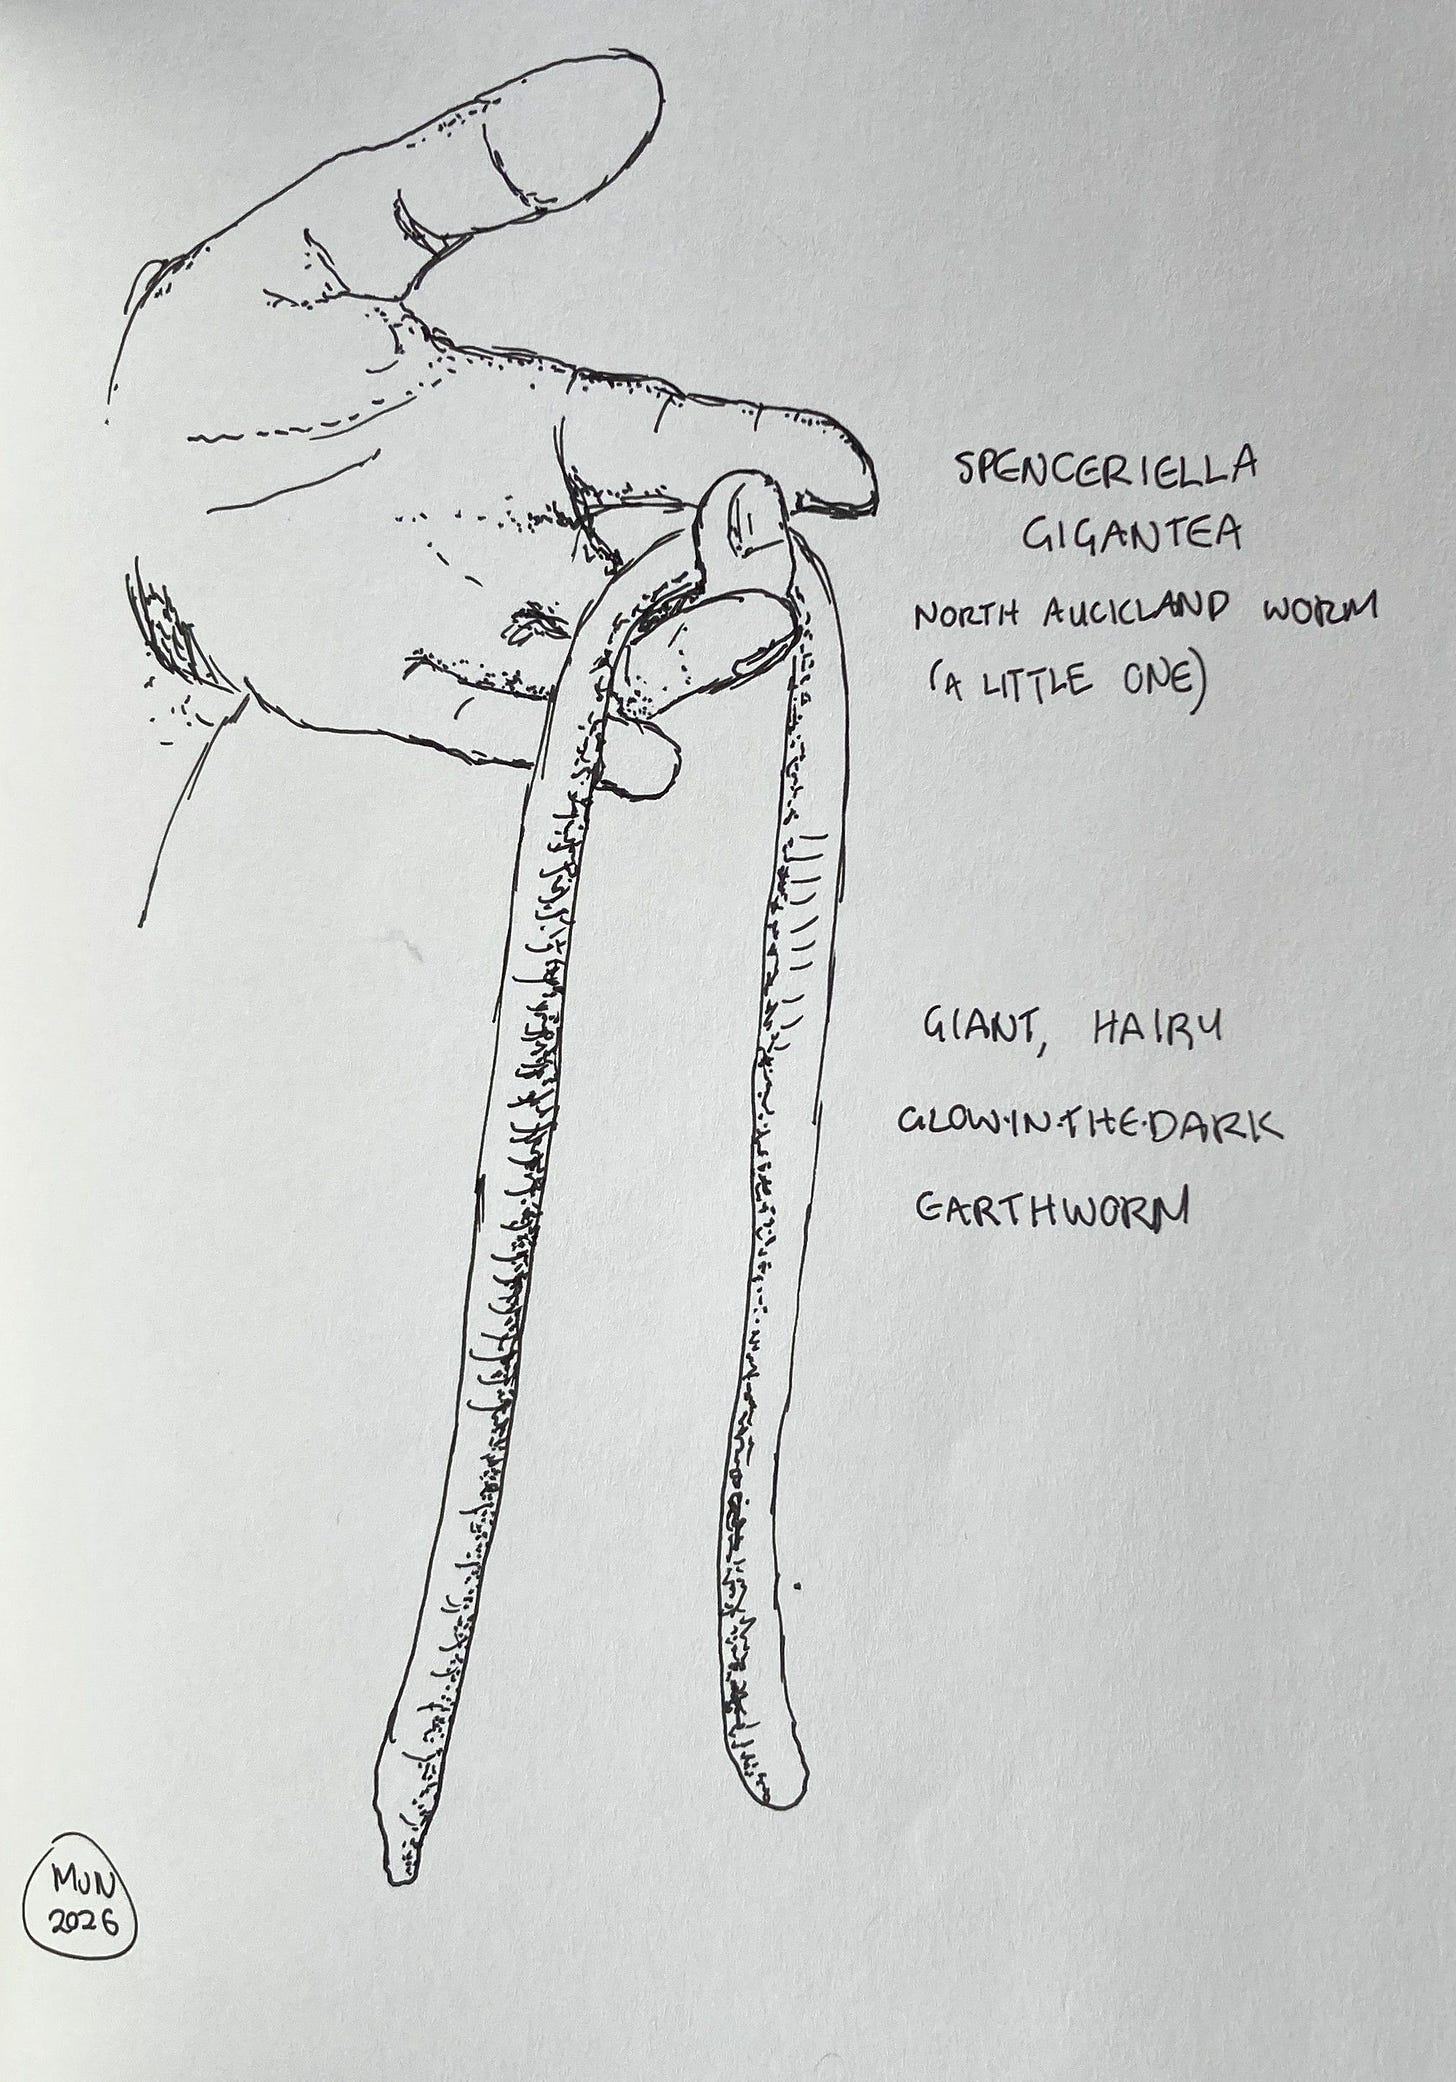 SPENCERIELLA
GIGANTEA
NORTH AUCKLAND WORM
(A LITTLE ONE)
GIANT, HAIRY
GLOW·IN·THE·DARK
EARTHWORM
MUN
2026